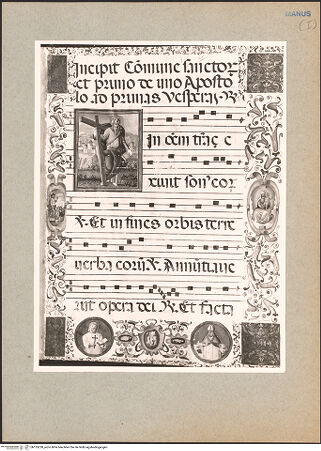 MANUS
(I)
Incipit Cõmune sanctoꝝ
et primo de uno Aposto
lo ad primas vesperas ℟
In oẽm trãs e
xiuit son9 eoꝝ
℟ Et in fines orbis terre
uerba eorũ ℟ Annũtiaue
rũt opera dei ℟ Et facta